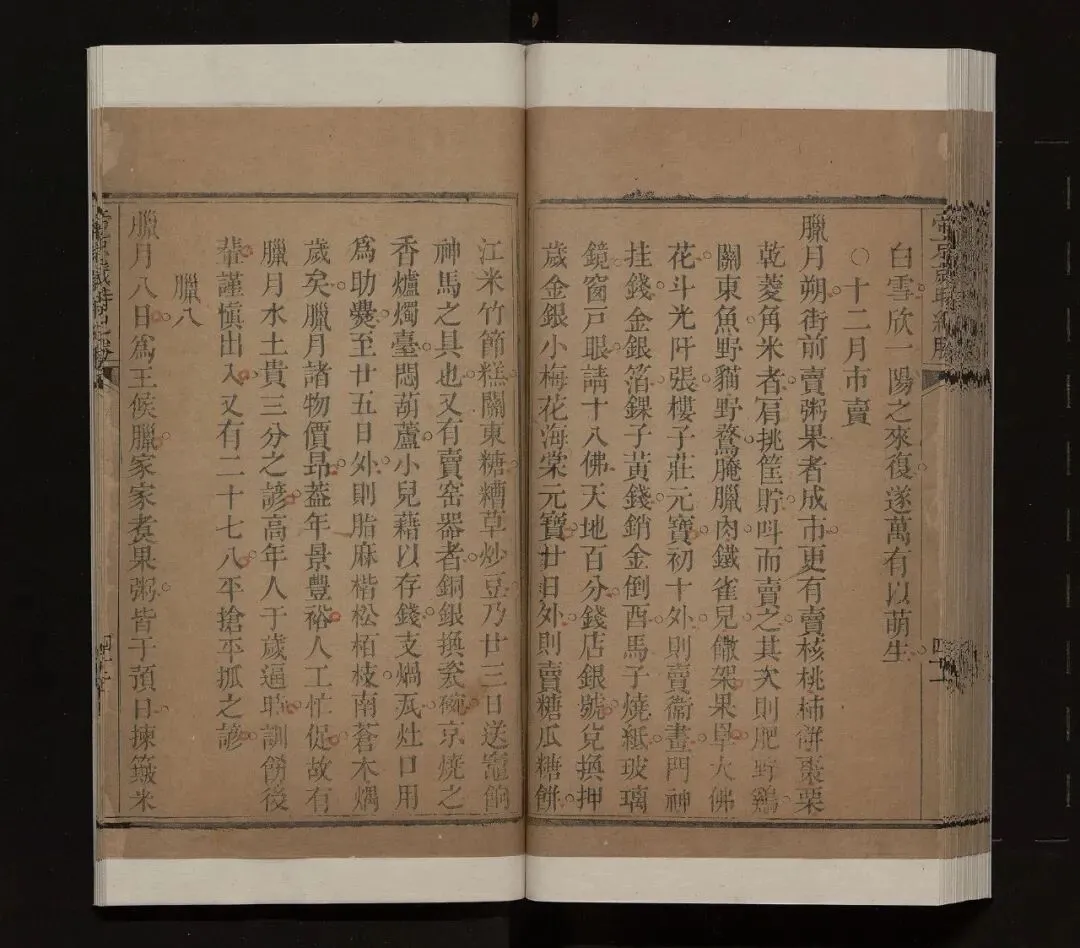 白雪欣一陽之來復遂萬有以萌生
○十二月市賣
臘月朔街前賣粥果者成市更有賣核桃柿餅棗栗
乾菱角米者肩挑筐貯呌而賣之其次則肥野鷄
關東魚野猫野鶩腌臘肉鐵雀兒饊架果早大佛
花斗光阡張樓子莊元寶初十外則賣衞畫門神
挂錢金銀箔錁子黃錢銷金倒酉馬子燒紙玻璃
鏡窗戸眼請十八佛天地百分錢店銀號兌換押
歲金銀小梅花海棠元寶廿日外則賣糖瓜糖餅
江米竹節糕關東糖糟草炒豆乃廿三日送竈餉
神馬之具也又有賣窑器者銅銀換瓷碗京燒之
香爐燭臺悶葫蘆小兒藉以存錢支煱瓦灶口用
爲助爨至廿五日外則脂麻楷松栢枝南蒼木煱
歲矣臘月諸物價昂葢年景豐裕人工忙促故有
臘月水土貴三分之諺高年人于歲逼時訓飭後
輩謹愼出入又有二十七八平搶平抓之諺
臘八
臘月八日爲王侯臘家家煮果粥皆于預日揀簸米
帝京歲時紀勝
四十二